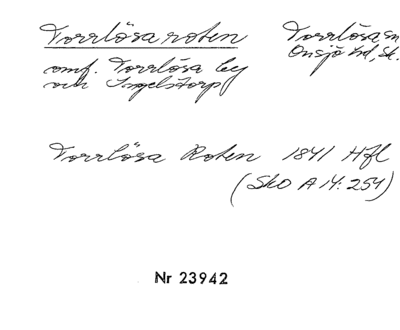 Torrlösa roten
Torrlösa sn
Onsjö hd, Sk.
omf. Torrlösa by
och Ingelstorp
Torrlösa Roten 1841 Hfl
(Sko A 14: 254)
Nr 23942